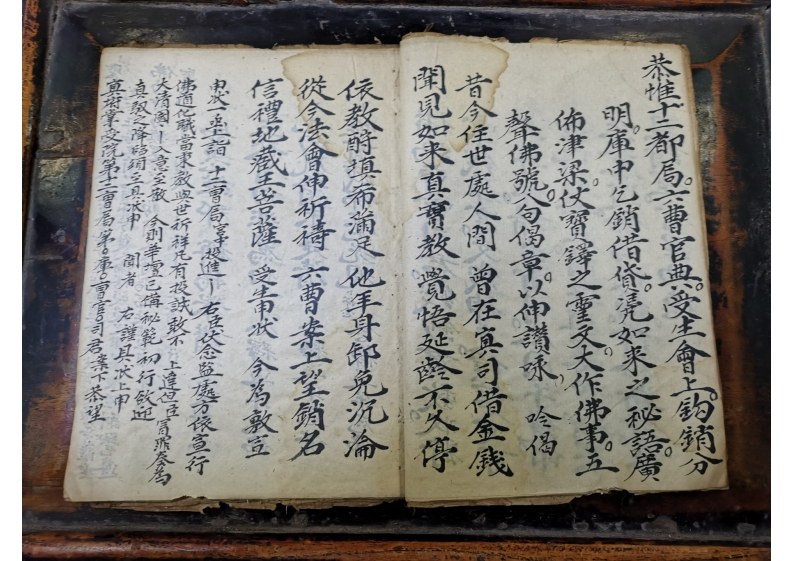 恭惟十二都局六曹官典受生會上鈎銷分
明庫中乞銷借貸凴如来之秘語廣
佈津梁仗寳鐸之靈文大作佛事五
聲佛號八句偈章以伸讃咏 吟偈
昔今住世處人間 曾在真司借金錢
聞見如来真實教 覺悟延齡不久停
依教酧填希滿足 他年身卸免沉淪
從今法會伸祈禱 六曹案上望銷名
信禮地藏王菩薩 受生申状 今為敷宣
申状一函上詣 十二曹局 投進 右臣伏念監處方依宣行
佛道化職當東教與世祈祥凡有投誠敢不 上達世臣冒罪奏為
大清國 入意至敬 今則華壇已備秘範初行欲迎
真馭之降臨須至具状申 聞者 右謹具状上申
冥府掌受院第十二曹局第 庫 曹官 司君案下恭望